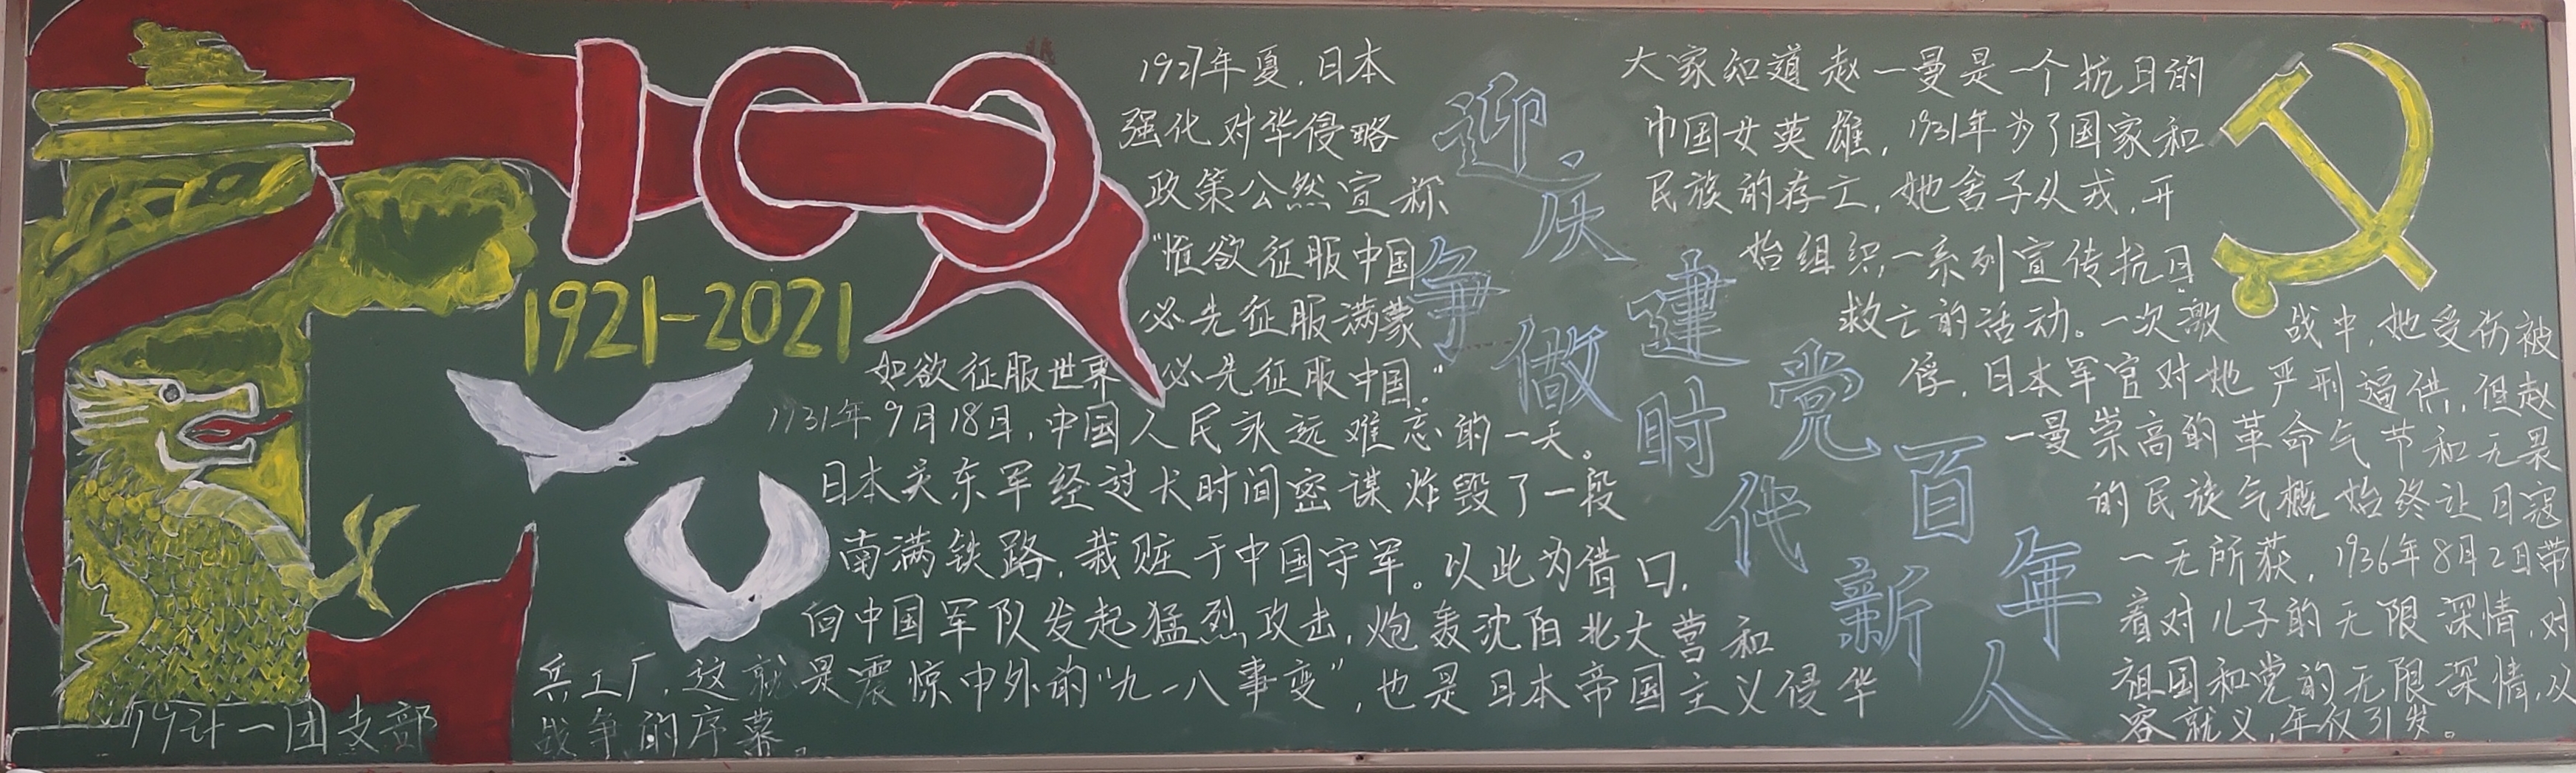 1921-2021
1927年夏,日本
强化对华侵略
政策公然宣称
"惟欲征服中国
必先征服满蒙
如欲征服世界 必先征服中国。"
1931年9月18日,中国人民永远难忘的一天。
日本关东军经过长时间密谋炸毁了一段
南满铁路,栽赃于中国守军。以此为借口,
向中国军队发起猛烈攻击,炮轰沈阳北大营和
兵工厂,这就是震惊中外的"九一八事变",也是日本帝国主义侵华
战争的序幕。
迎庆建党百年
争做时代新人
大家知道赵一曼是一个抗日的
中国女英雄,1931年为了国家和
民族的存亡,她舍子从戎,开
始组织一系列宣传抗日
救亡的活动。一次激 战中,她受伤被
俘,日本军官对她严刑逼供,但赵
一曼崇高的革命气节和无畏
的民族气概始终让日寇
一无所获,1936年8月2日带
着对儿子的无限深情,对
祖国和党的无限深情,从
容就义,年仅31岁。
一团支部